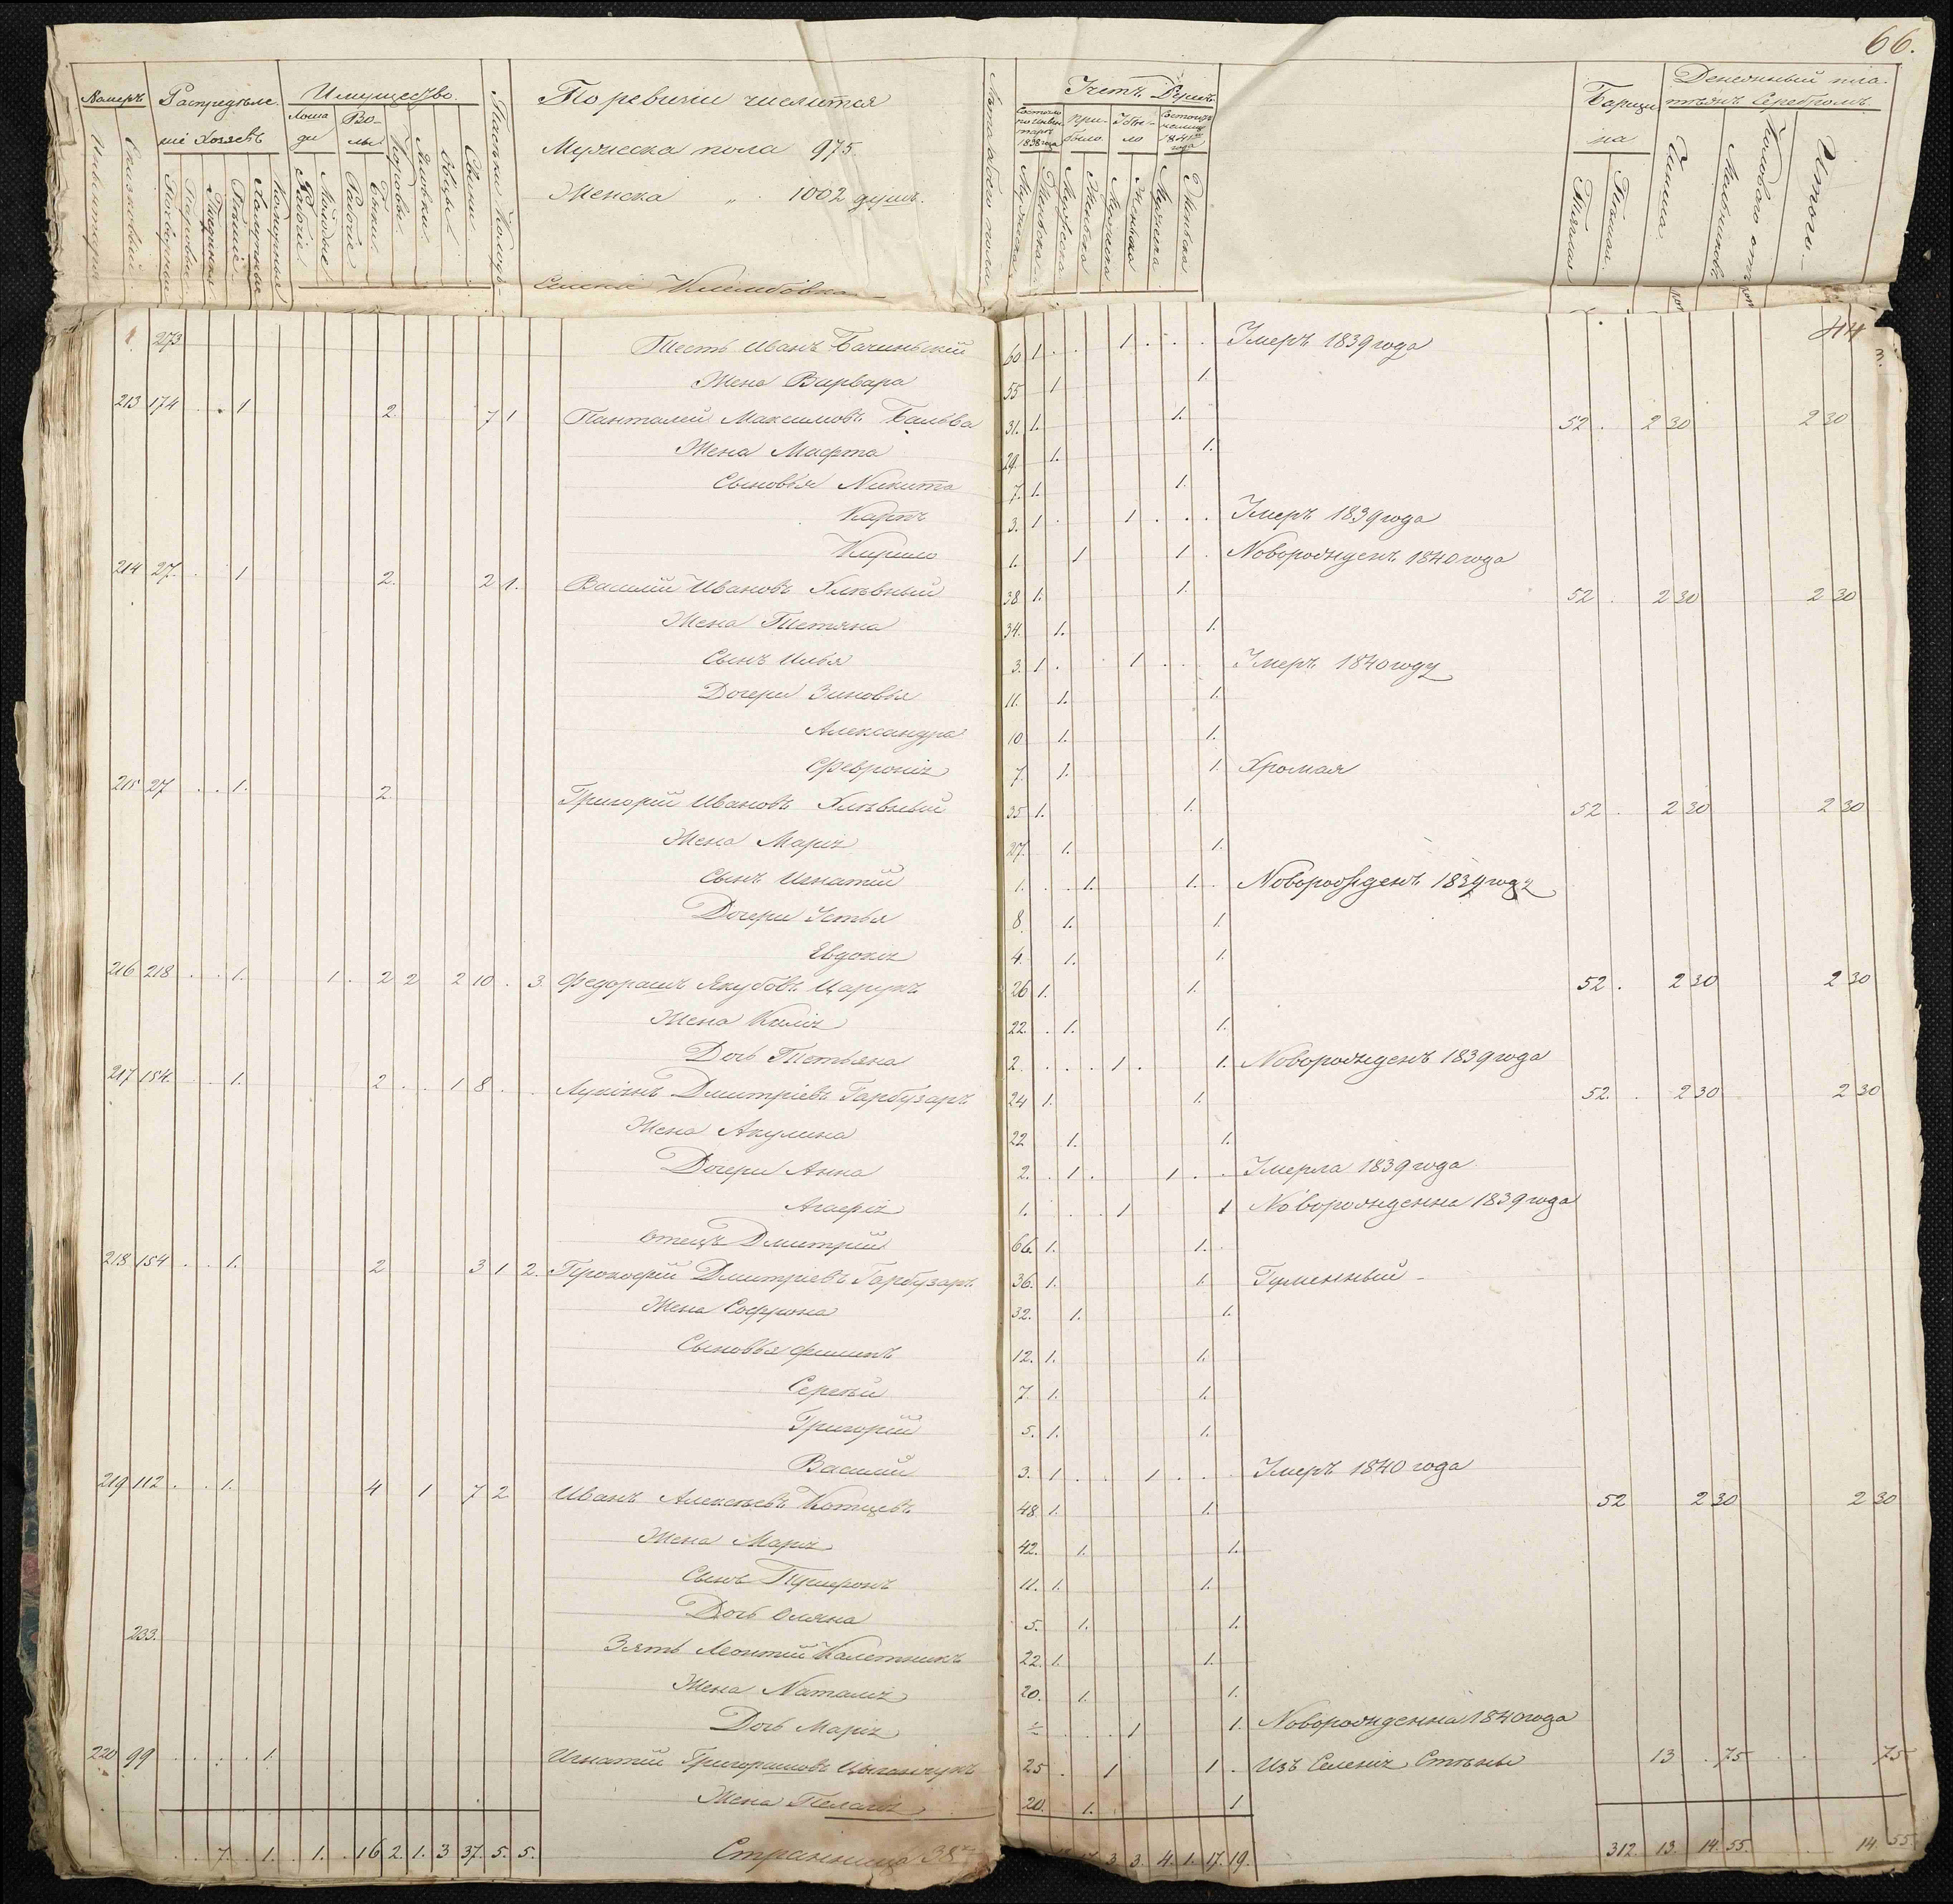 66.
Номеръ
Инвентаря
Списковый
Распредѣле-
ніе Хозяевъ
Имущество
Лоша
ди
Во-
лы
Рабочіе
Молодые
Рабочіе
Бычки
Коровы
Яловки
Овцы
Свиньи
По ревизіи числится
Мужеска пола 975.
Женска „ 1002 душъ.
Селеніе Клембовка
Лѣта
Учетъ Душъ
Состояло по инвентарю 1838 года
При-
было
Убы-
ло
Состоитъ налицо 1841 года
Мужеска
Женска
Мужеска
Женска
Мужеска
Женска
Мужеска
Женска
Барщи
на
Тяглая
Пѣшая
Денежный пла-
тежъ Серебромъ
Чинша
Итого
44
273 Тесть Иванъ Бачиньскій 60 1 . . 1 . . . Умеръ 1839 года
Жена Варвара 55 1 1.
213 174 . . 1 2. 7 1 Панталей Максимовъ Бальва 31. 1. 1. 52 . 2 30 2 30
Жена Марта 29. 1. 1.
Сыновья Никита 7. 1. 1.
Карпъ 3. 1 . 1 . . . Умеръ 1839 года
Кирило 1. 1 1 . Новорожденъ 1840 года
214 27. . . 1 2. 2 1. Василій Ивановъ Хлѣвный 38 1. 1. 52 . 2 30 2 30
Жена Тетяна 34. 1. 1.
Сынъ Илья 3. 1 . . 1 . . Умеръ 1840 году
Дочери Зиновья 11. 1. 1.
Александра 10 1. 1.
Февронія 7. 1. 1. Хромая
215 27 . . 1. 2. Григорій Ивановъ Хлѣвный 35 1. 1. 52 . 2 30 2 30
Жена Марія 27. 1. 1.
Сынъ Игнатій 1. . . 1. 1. . Новорожденъ 1839 году
Дочери Устья 8. 1. 1.
Евдокія 4. 1. 1.
216 218 . . 1. 1 . 2 2 2 10 . 3. Федорашъ Якубовъ Царукъ 26 1. 1. 52 . 2 30 2 30
Жена Килія 22. . 1. 1.
Дочь Тетьяна 2. . . . 1 . 1. Новорожденъ 1839 года
217 154. . . 1. 2 . . 1 8 . . Лукіянъ Дмитріевъ Гарбузаръ 24 1. 1. 52. . 2 30 2 30
Жена Акулина 22 1. 1.
Дочери Анна 2. . 1 . 1 . . Умерла 1839 года
Агафія 1. . . 1 1 Новорожденна 1839 года
отецъ Дмитрій 66. 1. 1.
218 154 . . 1. 2 3 1 2. Прокофій Дмитріевъ Гарбузаръ 36. 1. 1. Гуменный
Жена Соффрона 32. 1. 1.
Сыновья Филипъ 12. 1. 1.
Сергѣй 7. 1. 1.
Григорій 5. 1. 1.
Василій 3. 1 . . 1 . . . Умеръ 1840 года
219 112 . . 1. 4 1 7 2 Иванъ Алексѣевъ Котцевъ 48. 1. 1. 52 2 30 2 30
Жена Марія 42. 1. 1.
Сынъ 11. 1. 1.
Дочь Оляна 5. 1. 1.
233. Зять Леонтій Калетникъ 22. 1. 1.
Жена Наталія 20. 1. 1.
Дочь Марія ½ . . . 1 1. Новорожденна 1840 года
220 99 . . . . 1. Игнатій Григорашовъ Цыганчукъ 25 . 1 1 . Изъ Селенія Стѣны 13 . 75 . . 75
Жена Пелагія 20. 1. 1
7. . 1. . 1. . 16 2. 1. 3 37. 5. 5. Страница 38я 17. 3 3. 4. 1. 17. 19. 312. 13. 14. 55. 14 55.